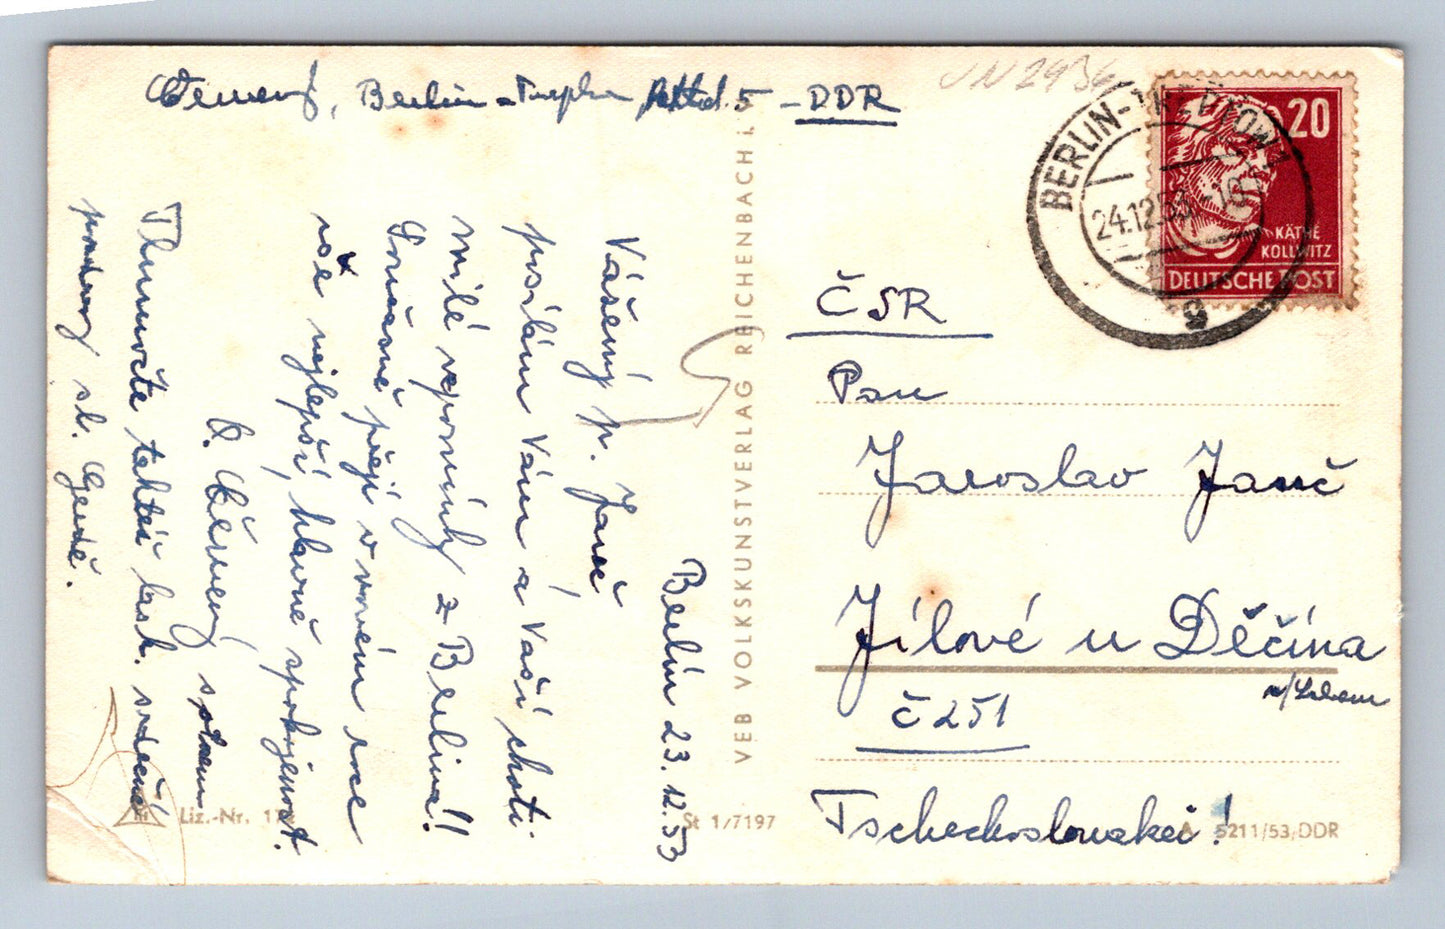 Berlin
5 - DDR
UN 2936
BERLIN-TREPTOW 1
24.12.53
g
20
KÄTHE
KOLLWITZ
DEUTSCHE POST
ČSR
Pan
Jaroslav Janč
Jílové u Děčína
n/Labem
č 251
Tschechoslowakei!
Berlín 23.12.53
Vášený p. Janč
posílám Vám a Vaší choti
milé vzpomínky z Berlina!!
Současně přeji v novém roce
vše nejlepší, hlavně spokojenost.
Tlumočte taktéž lask. srdečné
pozdravy sl. Gerdě.
VEB VOLKSKUNSTVERLAG REICHENBACH i. V.
Liz.-Nr.
St 1/7197
A 5211/53/DDR